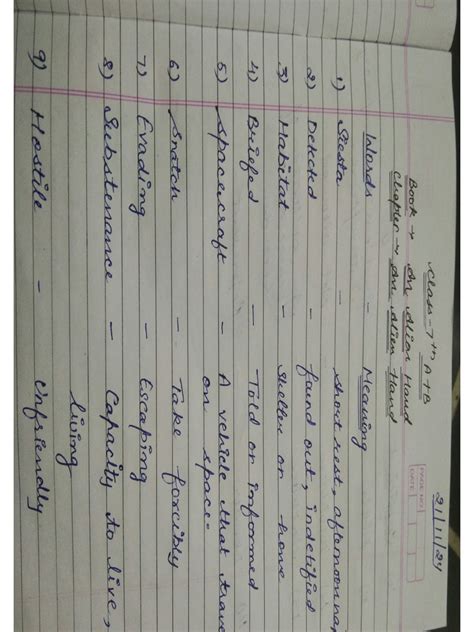 21/11/24
PAGE NO.
DATE
Class - 7th A+B
Book → An Alien Hand
Chapter → An Alien Hand
Words - Meaning
1) Siesta - short rest, afternoon nap
2) Detected - found out, indetified
3) Habitat - Shelter or home
4) Briefed - Told or informed
5) spacecraft - A vehicle that trave
on space.
6) Snatch - Take forcibly
7) Evading - Escaping
8) Substenance - Capacity to live,
living
9) Hostile - Unfriendly